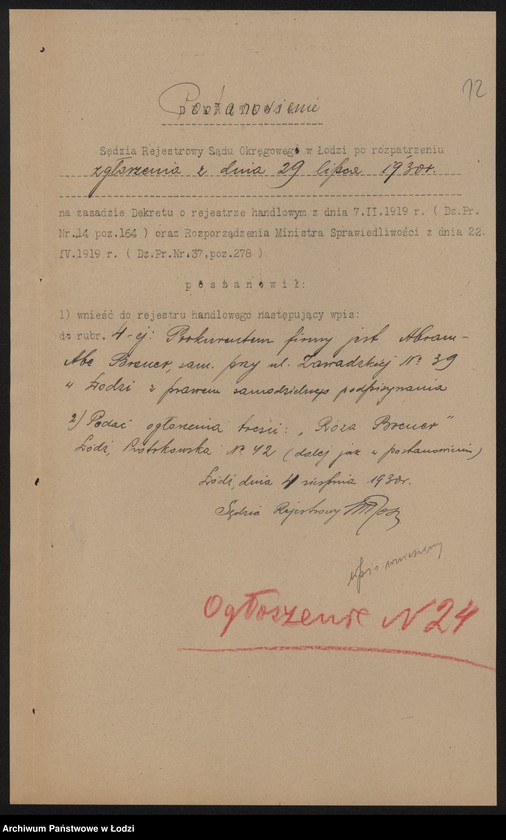 12
Postanowienie
Sędzia Rejestrowy Sądu Okręgowego w Łodzi po rozpatrzeniu
zgłoszenia z dnia 29 lipca 1930r.
na zasadzie Dekretu o rejestrze handlowym z dnia 7.II.1919 r. ( Dz.Pr.
Nr.14 poz.164 ) oraz Rozporządzenia Ministra Sprawiedliwości z dnia 22.
IV.1919 r. ( Dz.Pr.Nr.37,poz.278 )
postanowił:
1) wnieść do rejestru handlowego następujący wpis:
do rubr. 4-ej: Prokurentem firmy jest Abram-
Abe Brener, zam. przy ul. Zawadzkiej № 39
w Łodzi z prawem samodzielnego podpisywania
2) Podać ogłoszenia treści: „Róża Brener”
Łódź, Piotrkowska № 42 (dalej jak w postanowieniu)
Łódź, dnia 4 sierpnia 1930r.
Sędzia Rejestrowy
Ogłoszenie N 24
Archiwum Państwowe w Łodzi